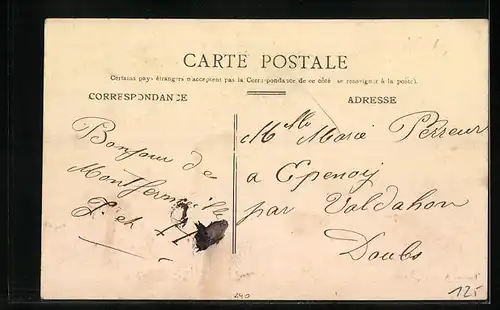 CARTE POSTALE
Certains pays étrangers n'acceptent pas la Correspondance de ce côté, se renseigner à la poste).
CORRESPONDANCE
ADRESSE
Bonjour de
Montfermeille
Mlle Marie Perreur
a Epenoy
par Valdahon
Doubs
240
125